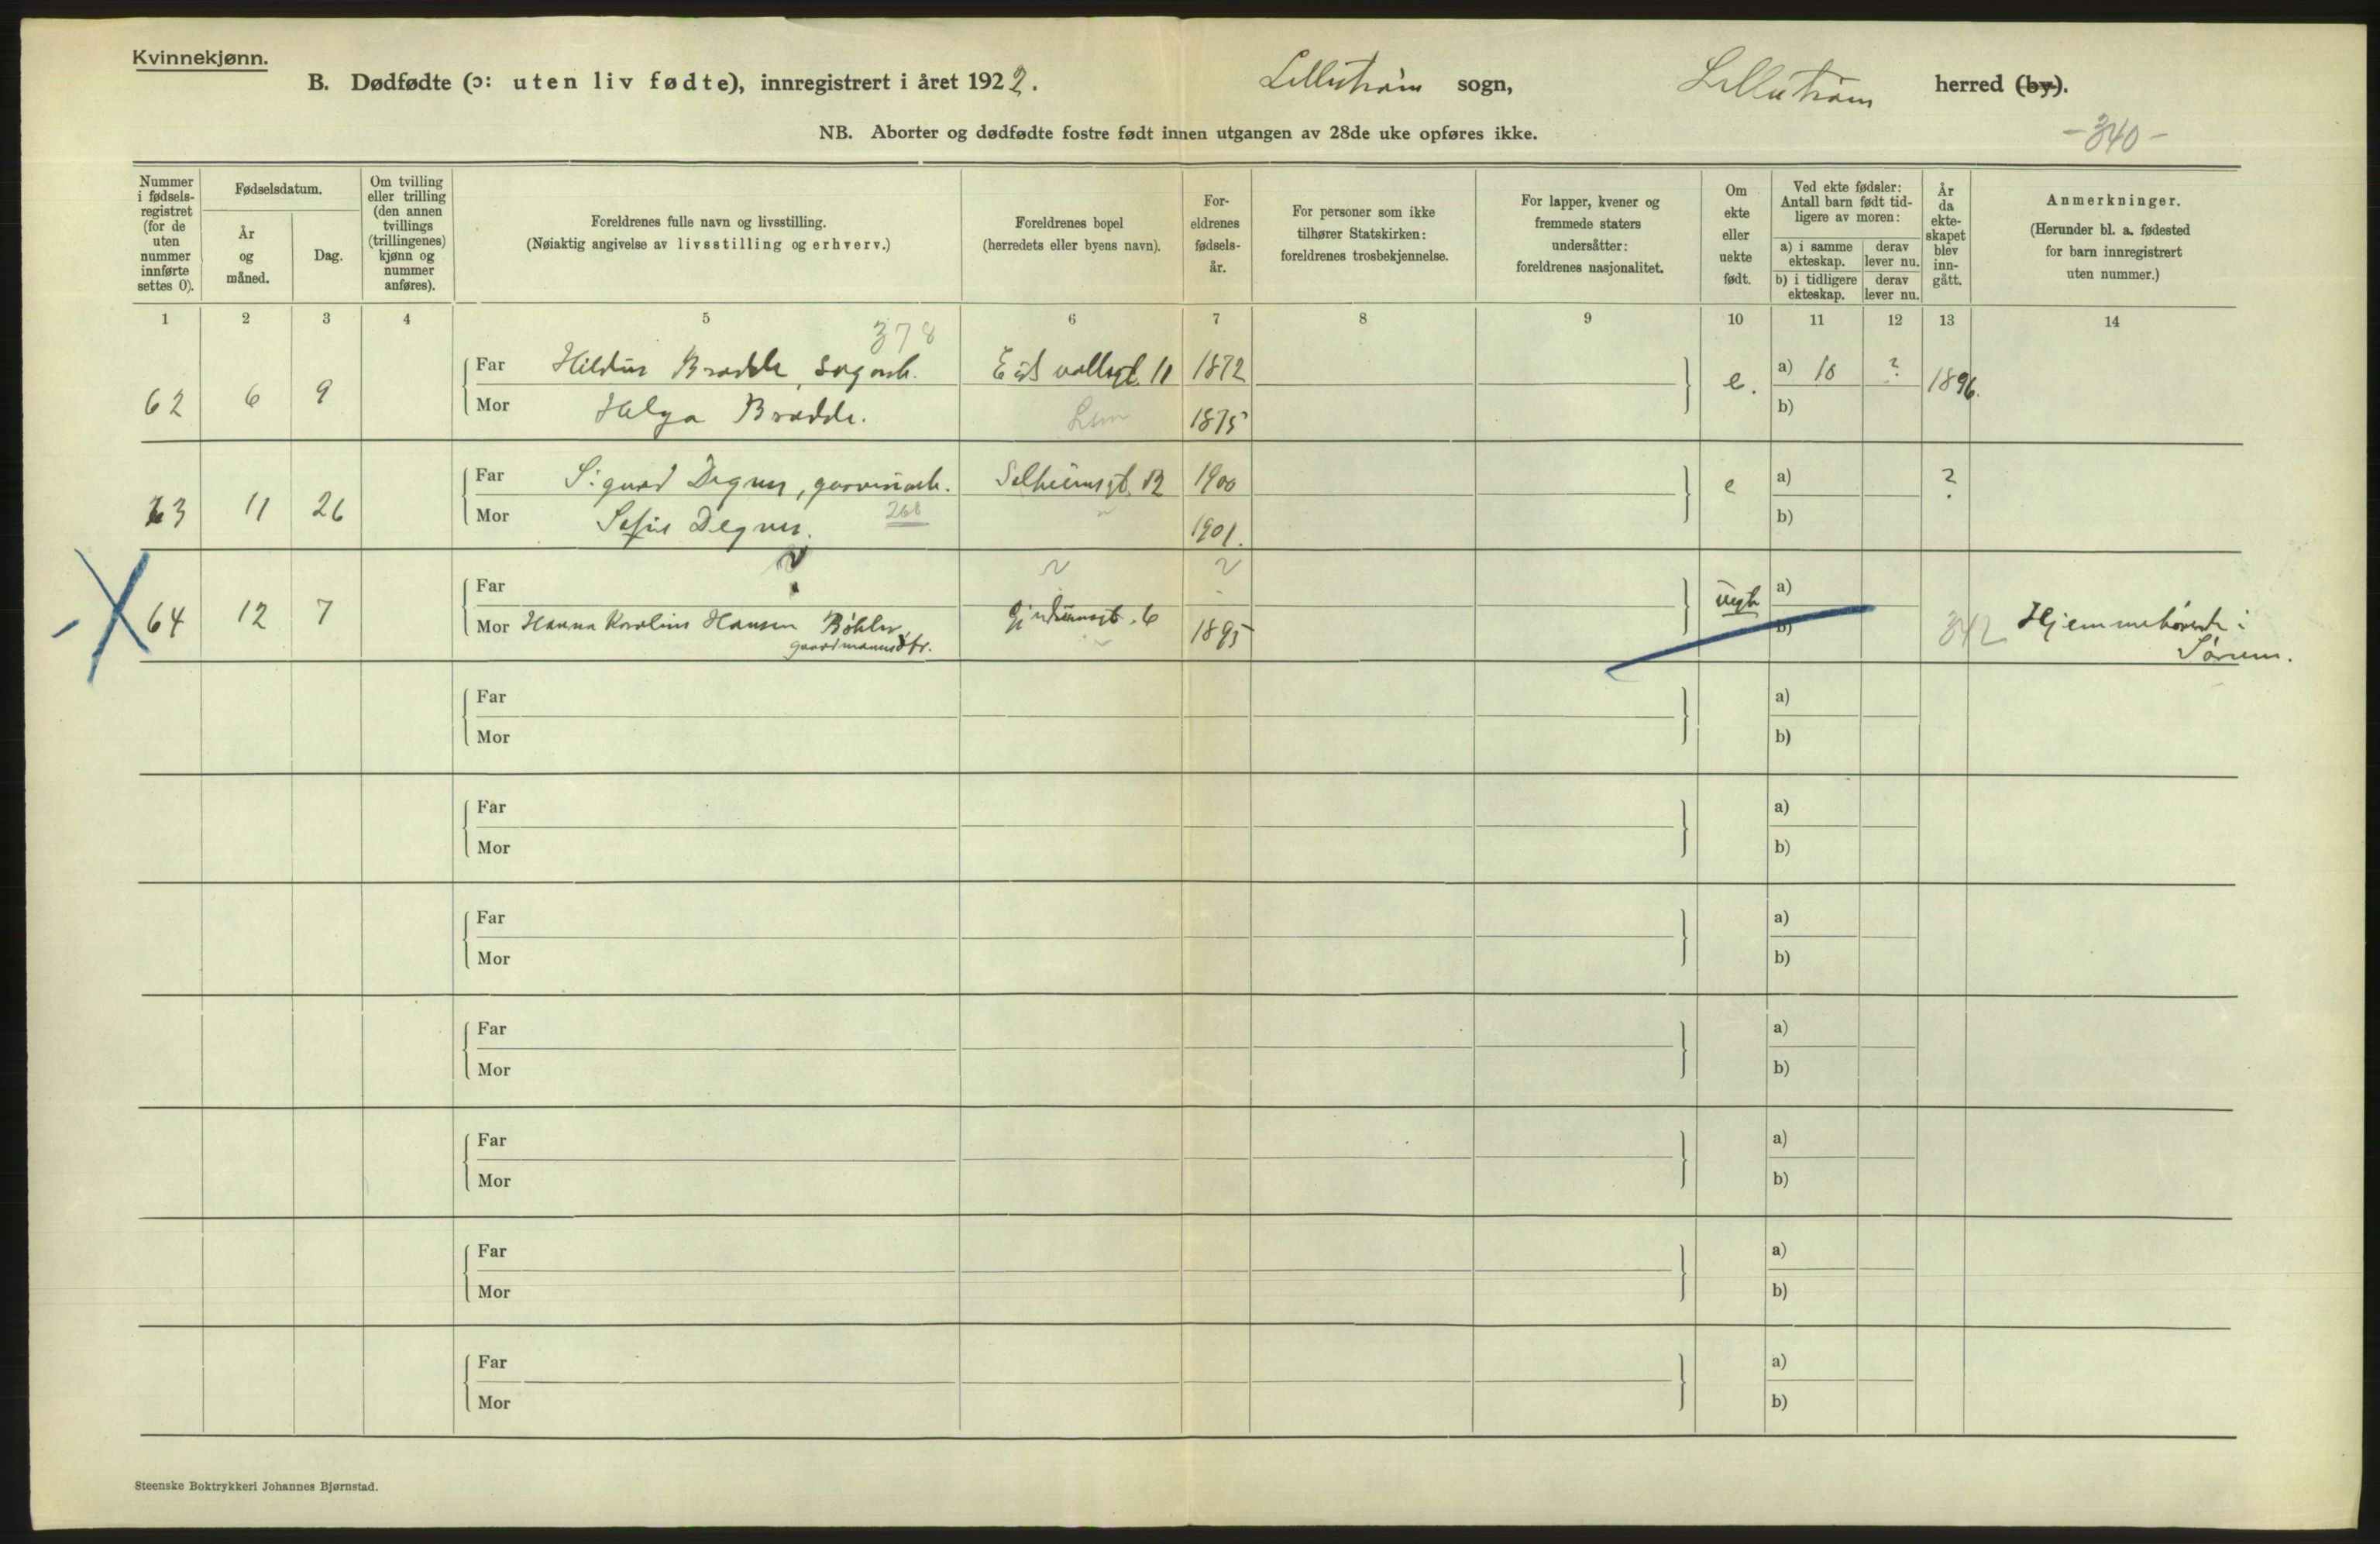 Kvinnekjønn.
B. Dødfødte (ɔ: uten liv fødte), innregistrert i året 1922. Lillestrøm sogn, Lillestrøm herred (by).
NB. Aborter og dødfødte fostre født innen utgangen av 28de uke opføres ikke.
-340-
Nummer i fødselsregistret (for de uten nummer innførte settes 0).
Fødselsdatum.
År og måned.
Dag.
Om tvilling eller trilling (den annen tvillings (trillingenes) kjønn og nummer anføres).
Foreldrenes fulle navn og livsstilling.
(Nøiaktig angivelse av livsstilling og erhverv.)
Foreldrenes bopel
(herredets eller byens navn).
Foreldrenes fødselsår.
For personer som ikke tilhører Statskirken: foreldrenes trosbekjennelse.
For lapper, kvener og fremmede staters undersåtter: foreldrenes nasjonalitet.
Om ekte eller uekte født.
Ved ekte fødsler: Antall barn født tidligere av moren:
a) i samme ekteskap. derav lever nu.
b) i tidligere ekteskap. derav lever nu.
År da ekteskapet blev inngått.
Anmerkninger.
(Herunder bl. a. fødested for barn innregistrert uten nummer.)
1 2 3 4 5 6 7 8 9 10 11 12 13 14
378
62 6 9 Far Hildur Brodde, sagarb. Eidsvollsgt. 11 1872 e. a) 10 ? 1896.
Mor Helga Brodde. 1875 b)
63 11 26 Far Sigurd Degnes, garveriarb. Solheimsgt. 12 1900 e a) ?
Mor Sofie Degnes. 268 1901. b)
64 12 7 Far ? ? ? uegte a)
Mor Hanna Karoline Hansen Bøhler, gaardmannsdtr. 6 1895 b) 342 Hjemmehørende i
Sørum.
Far a)
Mor b)
Far a)
Mor b)
Far a)
Mor b)
Far a)
Mor b)
Far a)
Mor b)
Far a)
Mor b)
Far a)
Mor b)
Steenske Boktrykkeri Johannes Bjørnstad.